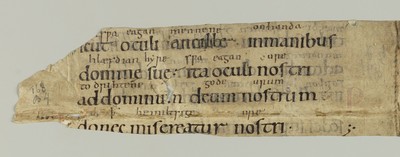 spa eagan
icut oculi ancille inmanibus
hyre spa eagan
domine sue · ita oculi nostri
to drihtene gode urum
ad dominum deum nostrum
ure
donec misereatur nostri · ;